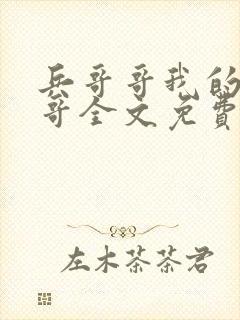 兵哥哥我的
哥全文免費
左木茶茶君